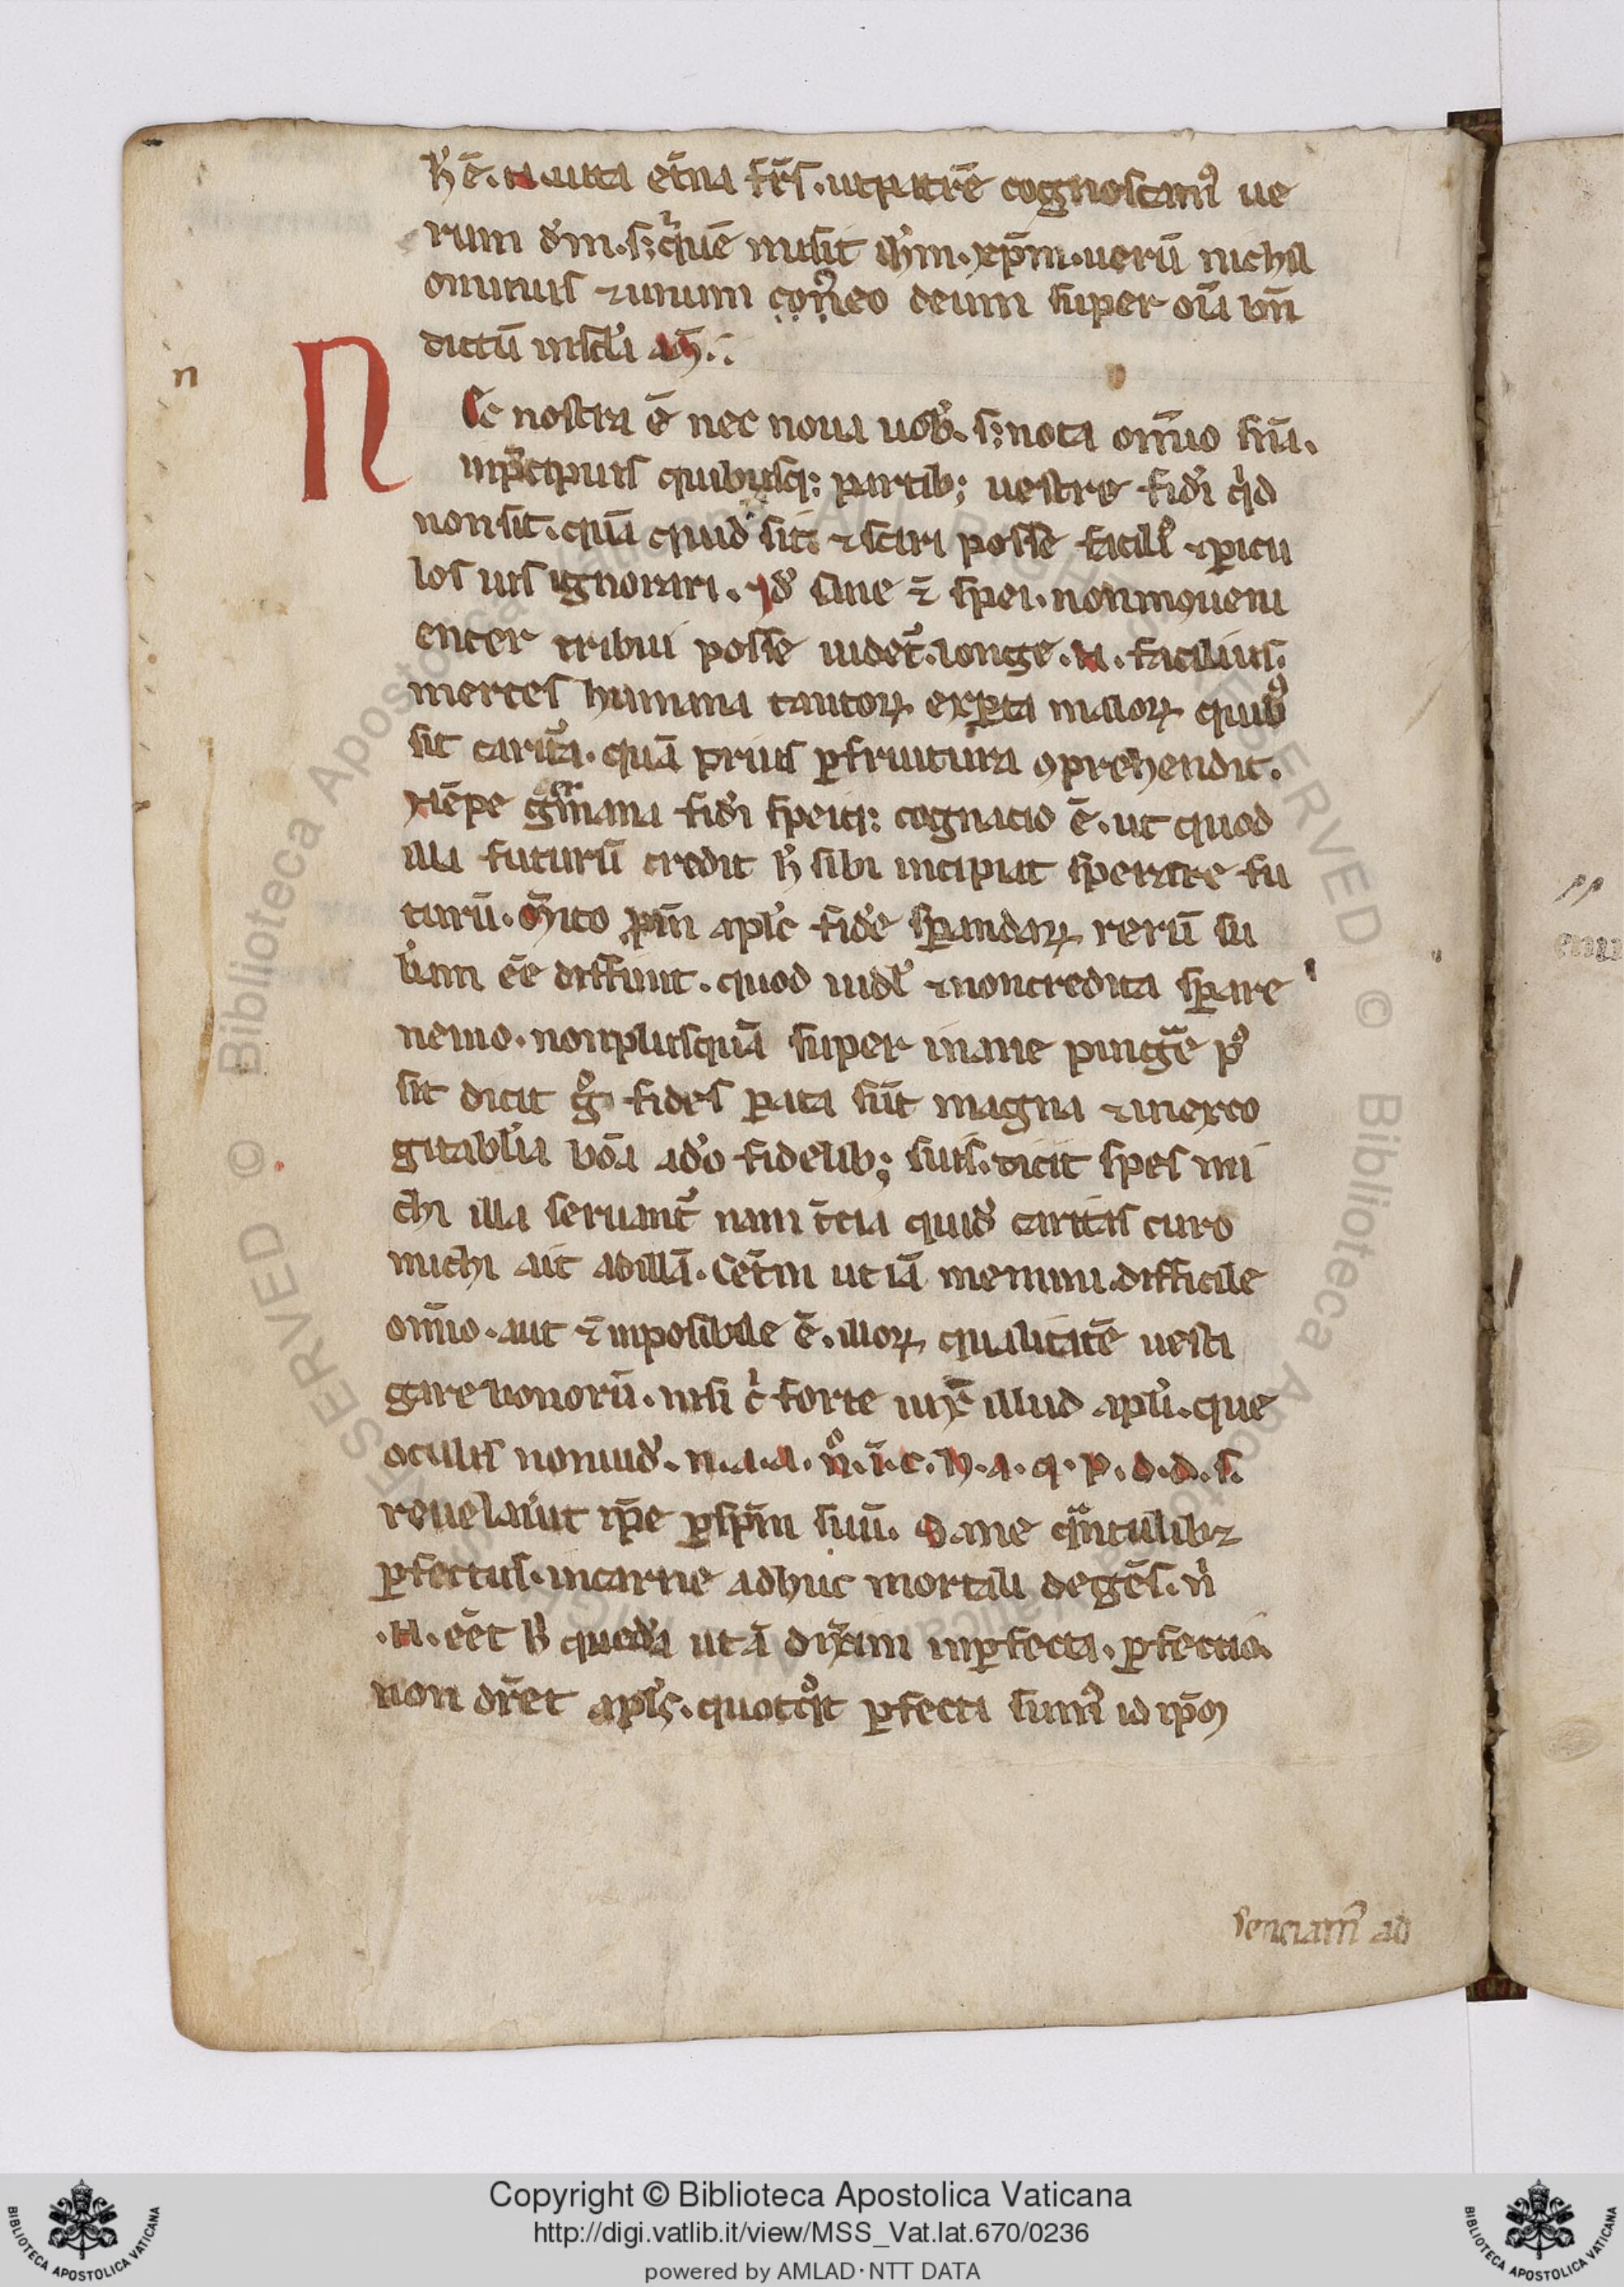 h̓ ē. n. uita et̄na fr̄s. ut patrē cognoscam᷒ ue
rum dm̄. s; quē misit ih̄m. xp̄m. uerū nichil
omin᷒ et unum deum super oīa bn̄
dictū in sclā am̄.
n
Nec nostra ē nec noua uob̄. s; nota omīo snīa.
in p̄cipuis quibusq; partib; uestre fidei qid
non sit. quā quid sit. ⁊ sciri posse facili᷒ ⁊ p̲icu
losius ignorari. Id̓ sane ⁊̄ spei. non inꝯueni
enter tribui posse uidet᷒. longe. n. facilius.
mentes humana tantoꝝ exp̲ta maloꝝ quib᷒
sit caritura. quā prius p̲fruitura ꝯprehendit.
Nēpe germana fidei speiq; cognatio ē. ut quod
illa futurū credit h̓ sibi incipiat sperare fu
turū. M̄ito aplc̄ fidē sp̲andaꝝ rerū su
b̄iam ēe diffiniit. quod uidl̓ ⁊ non credita sp̲are
nemo. non plusquā super inane pingē pos
sit dicit g̊ fides parata sūt magna ⁊ inexco
gitabilia bōa a dō fidelib; suis. dicit spes mi
chi illa seruant᷒ nam t̄cia quid̓ caritas curo
michi ait ad illā. Cet̄m ut iā memini difficile
omīo. aut ⁊̄ inposibile ē. illoꝝ qualitatē uesti
gare bonorū. nisi forte iux̄ illud apli̓. que
oculus non uid̓. n. a. a. n̊. ī. c. h. a. q. p. d. d. s.
reuelauit ip̄e p̲ sp̄m suū. Sane qntulib;
p̲fectus. in carne adhuc mortali degēs.
.n. eēt h̓ quedā ut ā dixim inp̲fecta. p̲fectio.
non dr̄et apl̓s. quotqt p̲fecti sum᷒ id ip̄m
senciam᷒ ad
Copyright © Biblioteca Apostolica Vaticana
http://digi.vatlib.it/view/MSS_Vat.lat.670/0236
powered by AMLAD·NTT DATA